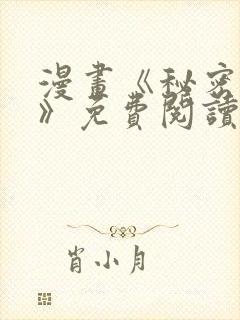 漫畫《秘密
》免費閱讀
肖小月